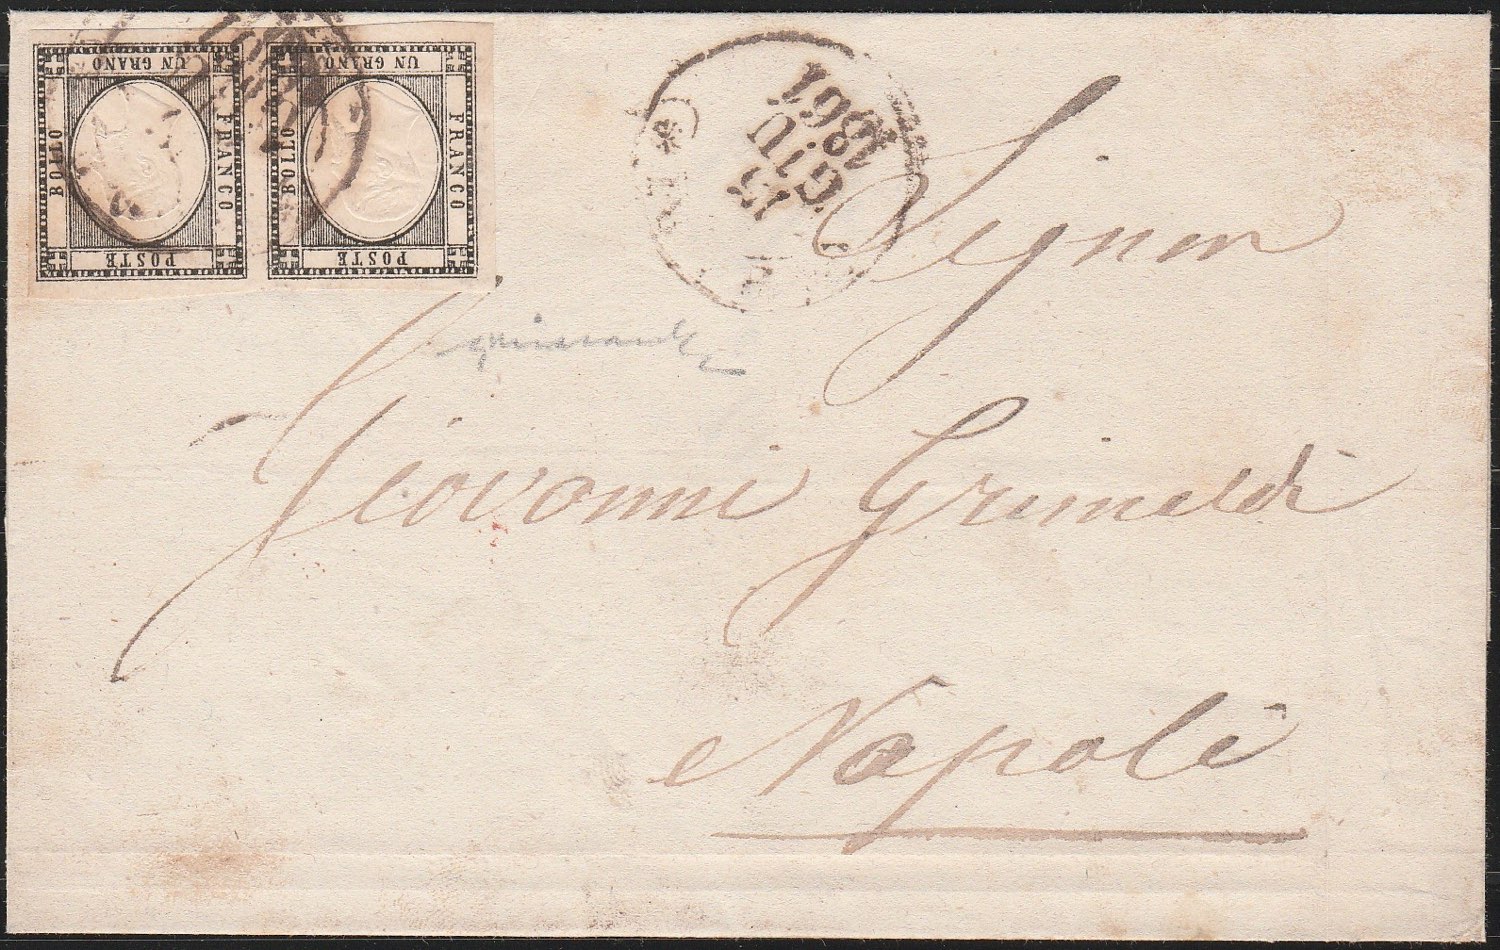 UN GRANO
BOLLO
FRANCO
POSTE
UN GRANO
BOLLO
FRANCO
POSTE
GIU
1861
Signor
Giovanni Grimaldi
Napoli